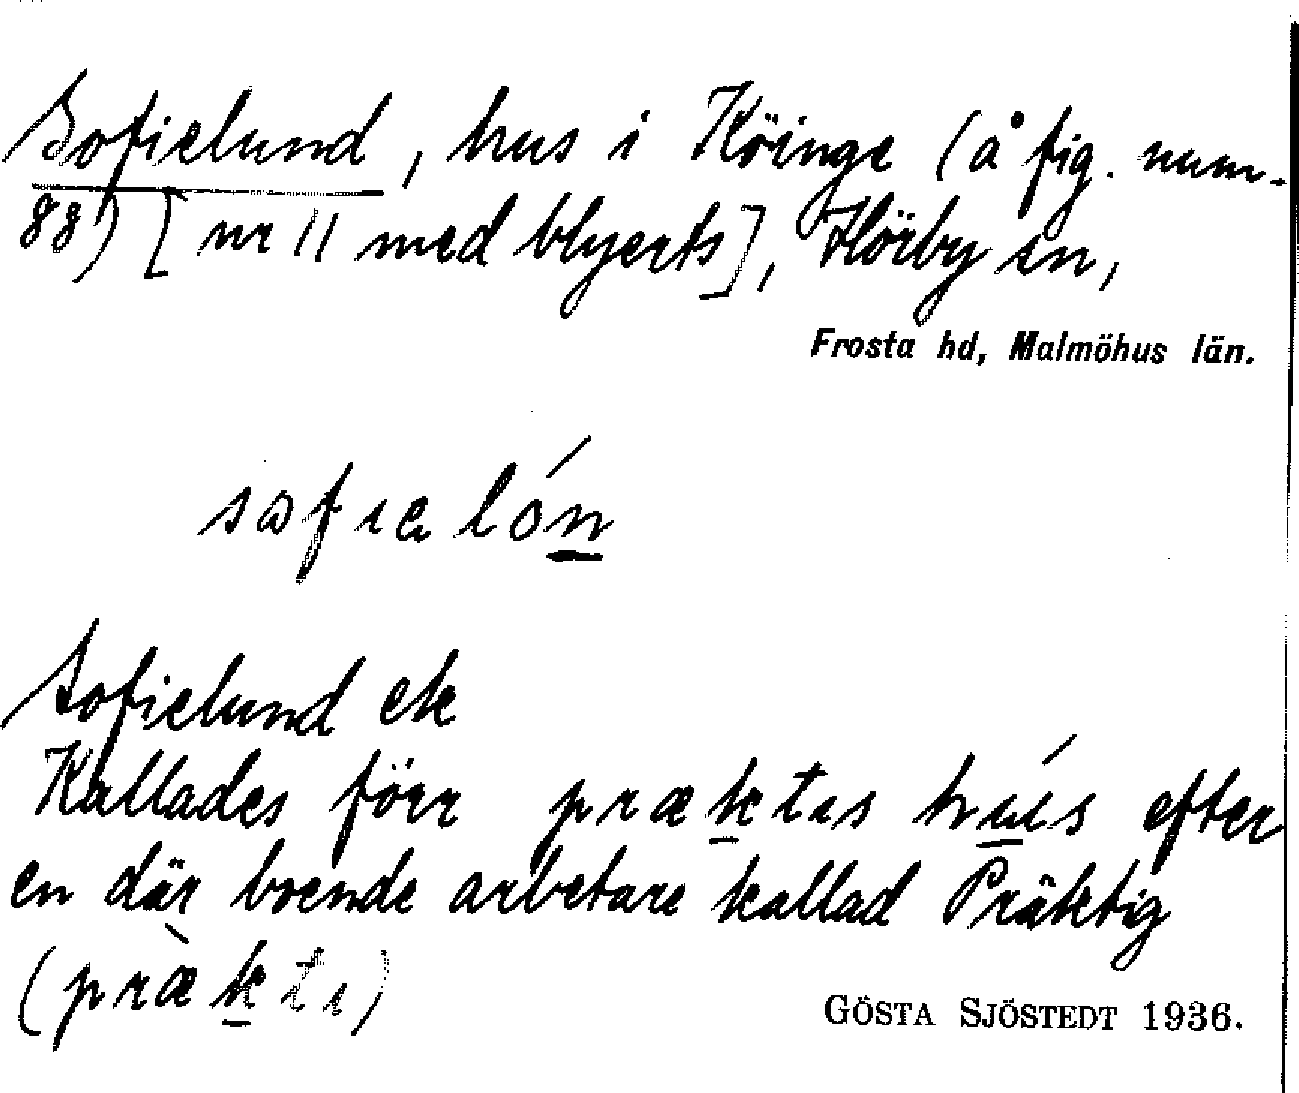 Sofielund, hus i Köinge (å fig. num-
88) [nr 11 med blyerts], Hörby sn,
Frosta hd, Malmöhus län.
søfıelón
Sofielund ek
Kallades förr præktıs húıs efter
en där boende arbetare kallad Präktig
(præ̀ktı)
GÖSTA SJÖSTEDT 1936.